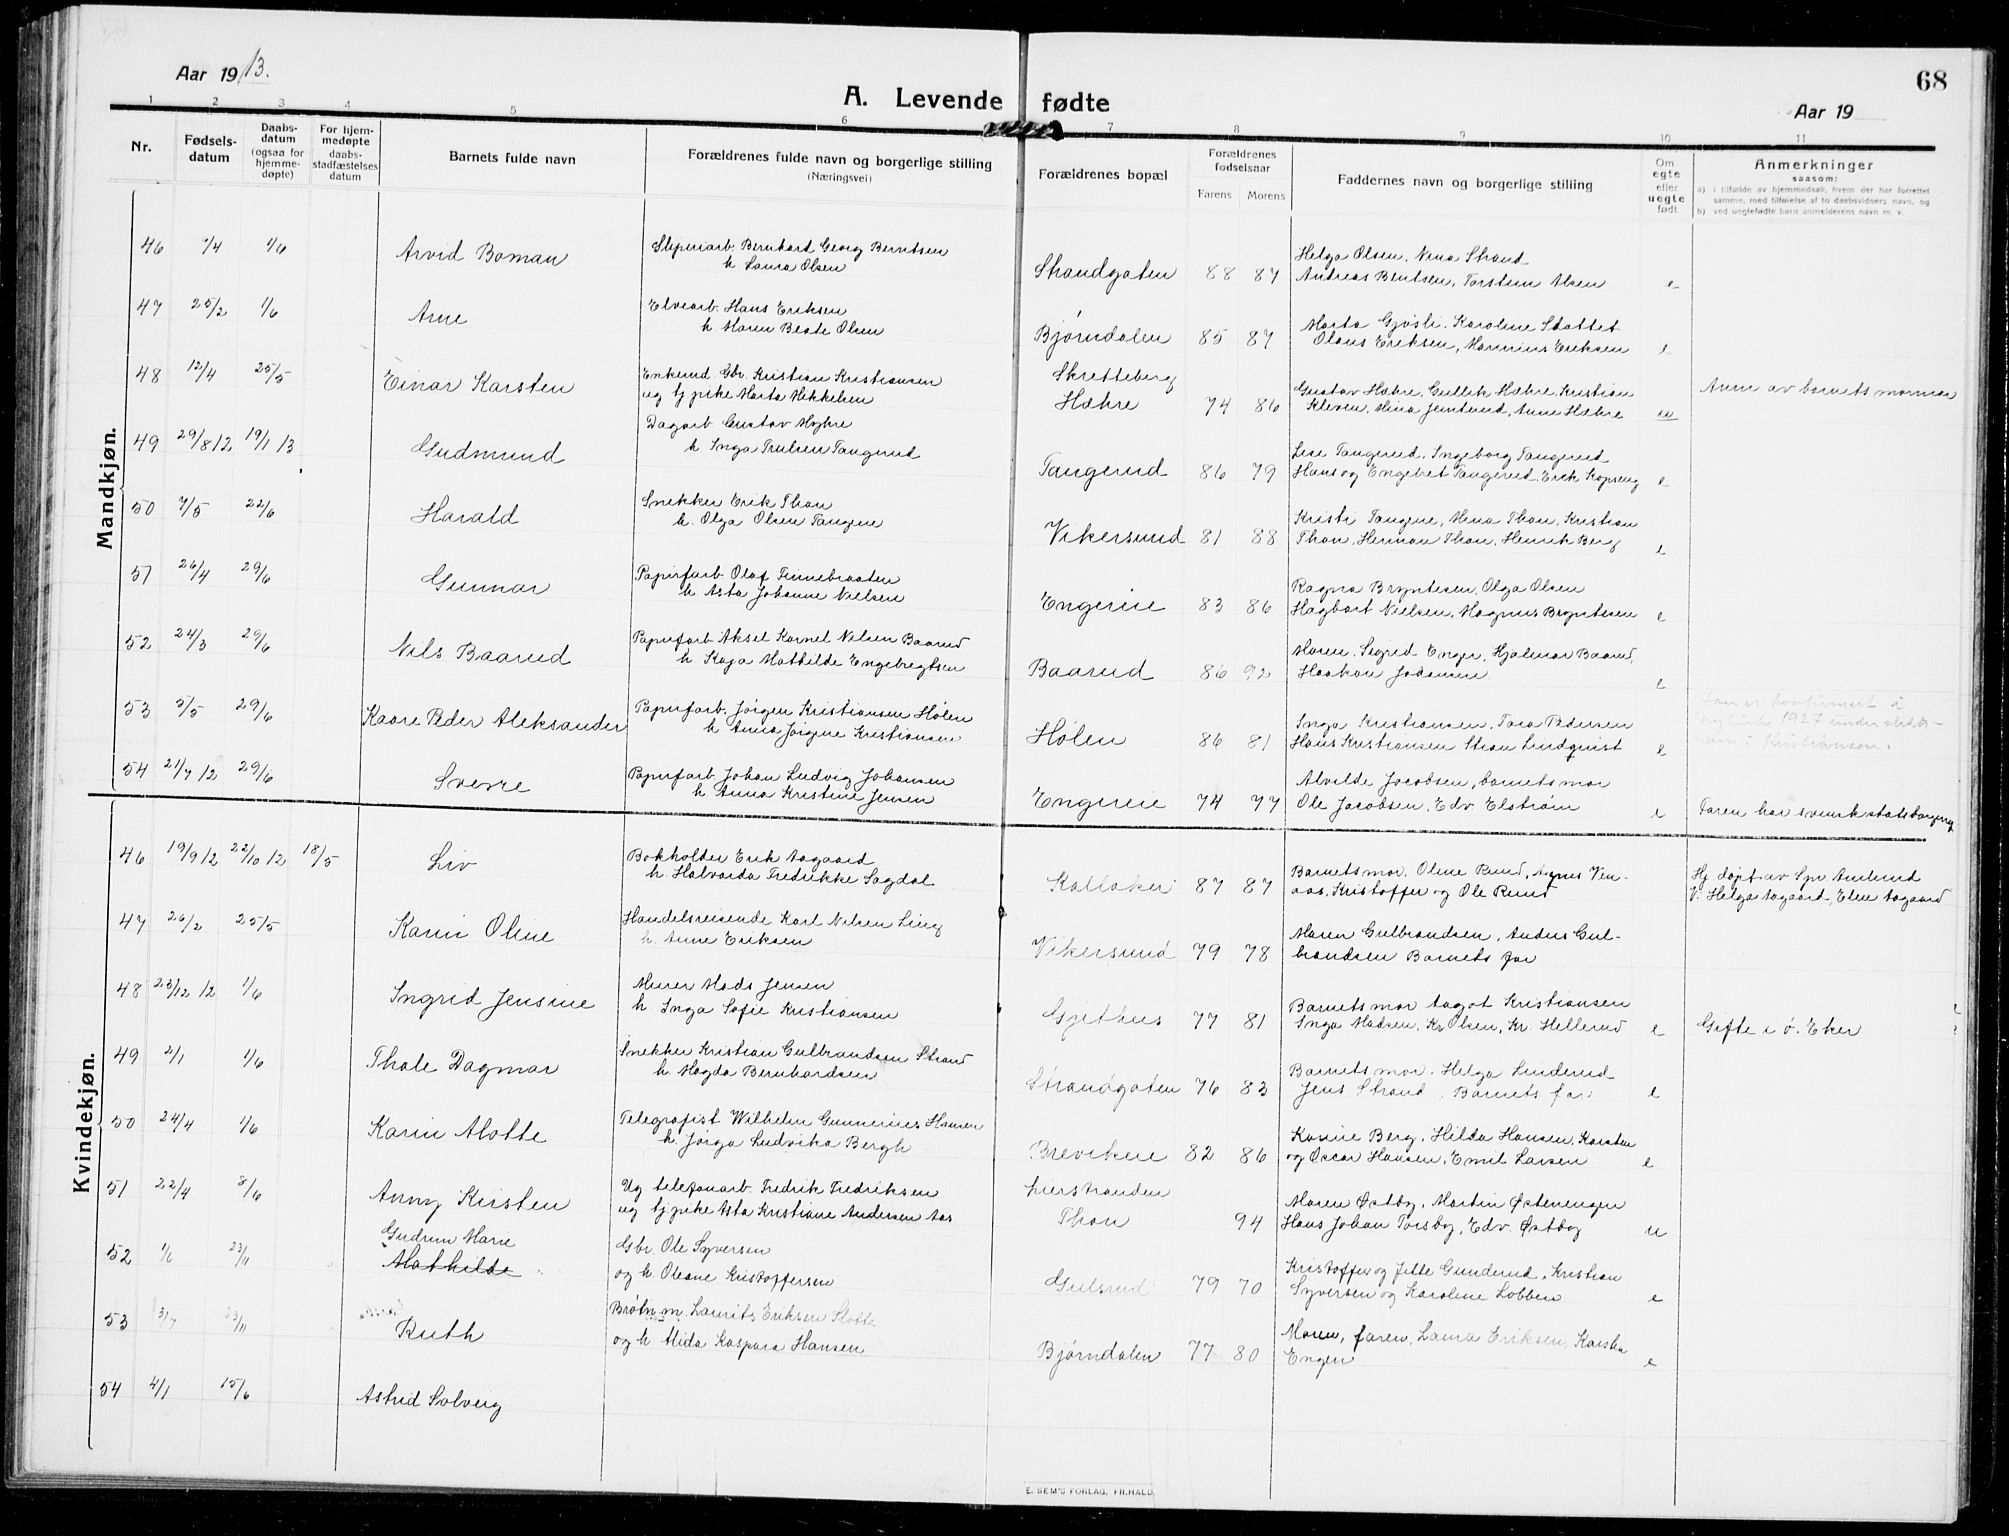 Aar 1913.
A. Levende fødte
68
Aar 19
1 2 3 4 5 6 7 8 9 10 11
Nr.
Fødsels-
datum
Daabs-
datum
(ogsaa for
hjemme-
døpte)
For hjem-
medøpte
daabs-
stadfæstelses
datum
Barnets fulde navn
Forældrenes fulde navn og borgerlige stilling
(Næringsvei)
Forældrenes bopæl
Forældrenes
fødselsaar
Farens Morens
Faddernes navn og borgerlige stilling
Om
egte
eller
uegte
født
Anmerkninger
saasom:
a) i tilfælde av hjemmedaab, hvem der har forrettet
samme, med tilføielse af to daabsvidners navn, og
b) ved uegtefødte barn anmelderens navn m. v.
Mandkjøn.
46 7/4 1/6 Arvid Boman Sliperiarb. Bernhard Georg Berntsen
h Laura Olsen
Strandgaten 88 87 Helga Olsen, Nina Strand
Andreas Bentsen, Torstein Olsen e
47 25/2 1/6 Arne Elvearb. Hans Eriksen
h. Maren Beate Olsen
Bjørndalen 85 87 Marta Gjøsli, Karoline Slattet
Olaus Eriksen, Marinius Eriksen e
48 12/4 25/5 Einar Karsten Enkemd Gbr. Kristian Kristiansen
ug tj pike Marta Mikkelsen
Skretteberg
Hæhre 74 86 Gustav Hæhre, Gullik Hæhre, Kristian
Kleven, Mina Jemterud, Anne Hæhre u
Anm av barnets mormor
49 29/8 12 19/1 13 Gudmund Dagarb Gustav Myhre
h Inga Trulsen Tangerud
Tangerud 86 79 Lise Tangerud, Ingeborg Tangerud
Hans og Engebret Tangerud, Erik Kopseng e
50 7/5 22/6 Harald Snekker Erik Thon
h. Olga Olsen Tangene
Vikersund 81 88 Kristi Tangene, Mina Thon, Kristian
Thon, Herman Thon, Henrik Berg e
57 26/4 29/6 Gunnar Papirfarb. Olaf Finnebraaten
h Asta Johanne Nielsen
Engereie 83 86 Ragna Bryntesen, Olga Olsen
Hagbart Nielsen, Magnus Bryntesen e
52 24/3 29/6 Nils Baarud Papirfarb Aksel Kornel Nilsen Baarud
h Kaja Mathilde Engebregtsen
Baarud 86 92 Maren, Sigrid Enger, Hjalmar Baarud,
Haakon Johansen e
53 5/5 29/6 Kaare Peder Aleksander Papirfarb. Jørgen Kristiansen Hølen
h Anna Jørgine Kristiansen
Hølen 86 81 Inga Kristiansen, Tora Pedersen
Hans Kristiansen Stian Lindqvist e
Han er konfirmert i
1927 under slekts-
navn: Kristiansen.
54 21/7 12 29/6 Sverre Papirfarb. Johan Ludvig Johansen
h Anna Kristine Jensen
Engereie 74 77 Alvilde Jacobsen, barnets mor
Ole Jacobsen, Edv Elstrøm e
Faren har svensk statsborgerrg
Kvindekjøn.
46 19/9 12 22/10 12 18/5 Liv Bokholder Erik Aagaard
h. Halvarda Fredrikke Sagdal
Kalloker 87 87 Barnets mor, Oline Ruud, Agnes Ven-
aas, Kristoffer og Ole Ruud
Hj. døpt av Spr. Amlund
V: Helga Aagaard, Elen Aagaard
47 26/2 25/5 Karin Oline Handelsreisende Karl Nilsen Lieng
h. Anne Eriksen
Vikersund 79 78 Maren Gulbrandsen, Anders Gul-
brandsen Barnets far
48 23/12 12 1/6 Ingrid Jensine Murer Mads Jensen
h Inga Sofie Kristiansen
Gjethus 77 81 Barnets mor Aagot Kristiansen
Inga Madsen, Kr Olsen, Kr. Hellerud e
Gifte i ø. Eker
49 2/1 1/6 Thale Dagmar Snekker Kristian Gulbrandsen Strand
h Magda Bernhardsen
Strandgaten 76 83 Barnets mor. Helga Linderud
Jens Strand, Barnets far e
50 24/4 1/6 Karin Alotte Telegrafist Wilhelm Gunnerius Hansen
h. Jørga Ludvika Bergh
Brevikeie 82 86 Kasine Berg, Hilda Hansen, Karsten
og Oscar Hansen, Emil Larsen e
51 22/4 8/6 Anny Kirsten Ug telefonarb. Fredrik Fredriksen
ug tj pike Asta Kristiane Andersen Aas
Lierstranden
Thon 94 Maren Østby, Martin Østevengen
Hans Johan Torsby, Edv. Østbog u
52 1/6 23/11 Gudrun Marie
Mathilde Gbr. Ole Syversen
og h. Oleane Kristoffersen
Gulsrud 79 70 Kristoffer og Jette Gunderud, Kristian
Syversen og Karoline Lobben e
53 3/7 23/11 Ruth Brøtn.m. Laurits Eriksen Slotte
og h. Alida Kaspara Hansen
Bjørndalen 77 80 Moren, faren, Laura Eriksen, Karsten
Engen e
54 4/1 15/6 Astrid Solveig
E. SEM'S FORLAG, FR.HALD.